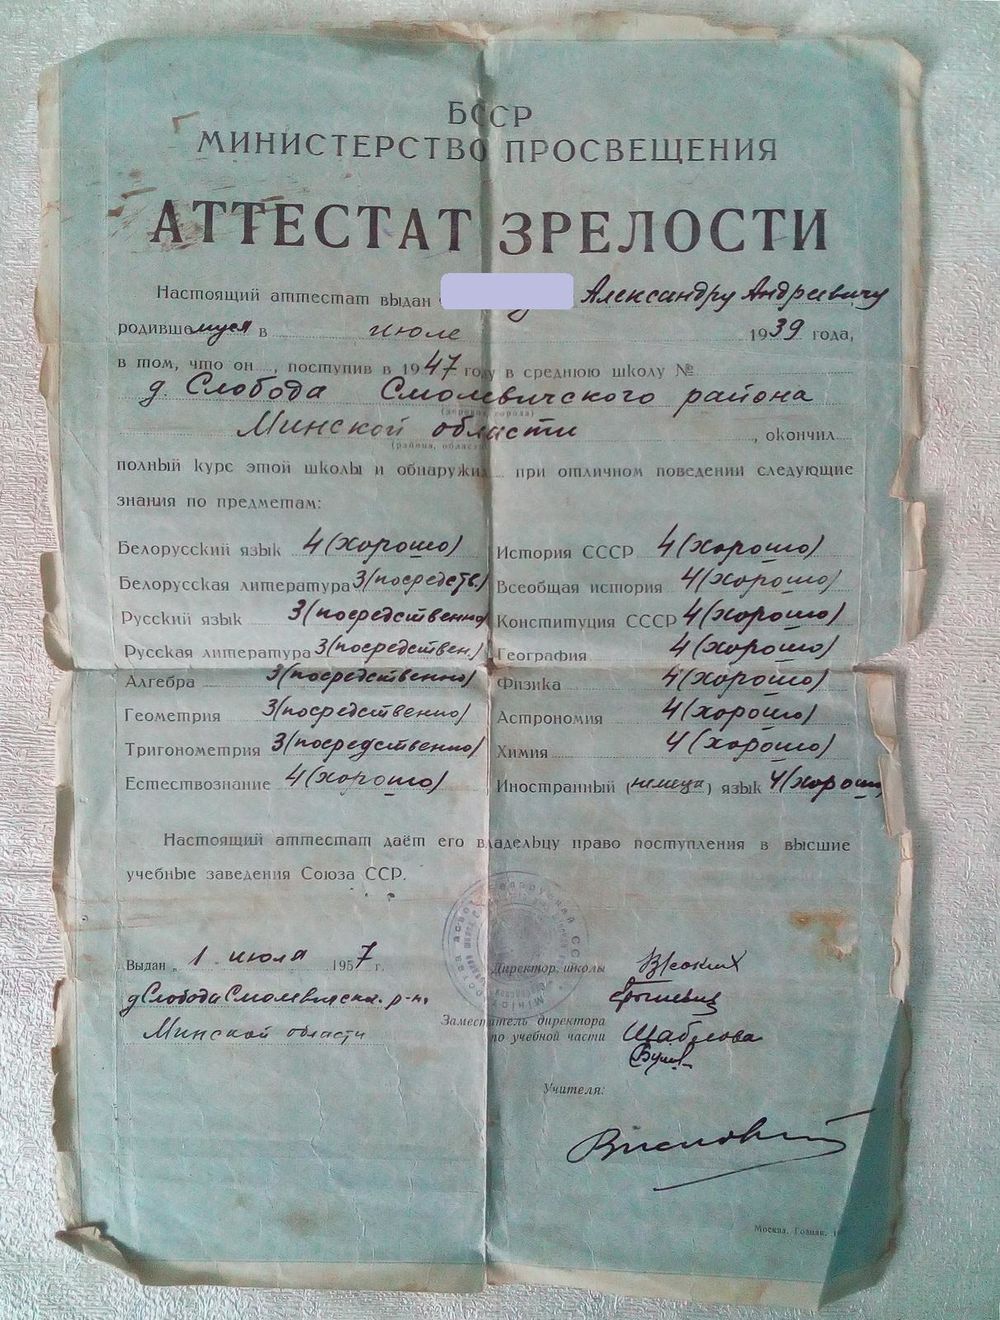 БССР
МИНИСТЕРСТВО ПРОСВЕЩЕНИЯ
АТТЕСТАТ ЗРЕЛОСТИ
Настоящий аттестат выдан Александру Андреевичу
родившемуся в июле 1939 года,
в том, что он, поступив в 1947 году в среднюю школу №
д. Слобода Смолевичского района
(деревни, города)
Минской области, окончил
(района, области)
полный курс этой школы и обнаружил при отличном поведении следующие
знания по предметам:
Белорусский язык 4 (хорошо)
Белорусская литература 3 (посредств)
Русский язык 3 (посредственно)
Русская литература 3 (посредствен)
Алгебра 3 (посредственно)
Геометрия 3 (посредственно)
Тригонометрия 3 (посредственно)
Естествознание 4 (хорошо)
История СССР 4 (хорошо)
Всеобщая история 4 (хорошо)
Конституция СССР 4 (хорошо)
География 4 (хорошо)
Физика 4 (хорошо)
Астрономия 4 (хорошо)
Химия 4 (хорошо)
Иностранный (немецк) язык 4 (хорошо)
Настоящий аттестат даёт его владельцу право поступления в высшие
учебные заведения Союза ССР.
Выдан „1 июля 1957 г.
д Слобода Смолевичск. р-на
Минской области
Директор школы
Заместитель директора
по учебной части
Учителя:
Москва. Гознак. 1